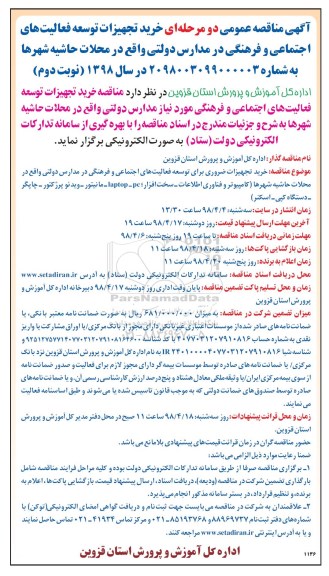 آگهی مناقصه عمومی دو مرحله‌ای خرید تجهیزات توسعه فعالیت‌های
اجتماعی و فرهنگی در مدارس دولتی واقع در محلات حاشیه شهرها
به شماره ۲۰۹۸۰۰۳۰۹۹۰۰۰۰۰۳ در سال ۱۳۹۸ (نوبت دوم)
اداره کل آموزش و پرورش استان قزوین در نظر دارد مناقصه خرید تجهیزات توسعه
فعالیت‌های اجتماعی و فرهنگی مورد نیاز مدارس دولتی واقع در محلات حاشیه
شهرها به شرح و جزئیات مندرج در اسناد مناقصه را با بهره گیری از سامانه تدارکات
الکترونیکی دولت (ستاد) به صورت الکترونیکی برگزار نماید.
نام مناقصه گذار: اداره کل آموزش و پرورش استان قزوین
موضوع مناقصه: خرید تجهیزات ضروری برای توسعه فعالیت‌های اجتماعی و فرهنگی در مدارس دولتی واقع در
محلات حاشیه شهرها (کامپیوتر و فناوری اطلاعات ـ سخت افزار: pc ـ laptop ـ مانیتور ـ ویدئو پرژکتور ـ چاپگر
ـ دستگاه کپی ـ اسکنر)
زمان انتشار در سایت: سه شنبه: ۹۸/۴/۴ ساعت ۱۳/۳۰
آخرین مهلت ارسال پیشنهاد قیمت: روز دوشنبه: ۹۸/۴/۱۷ ساعت ۱۹
مهلت زمانی دریافت اسناد مناقصه: تا ساعت ۱۹ روز پنج‌شنبه: ۹۸/۴/۶
زمان بازگشایی پاکت‌ها: روز سه‌شنبه: ۹۸/۴/۱۸ ساعت ۱۱
زمان اعلام به برنده: روز پنج‌شنبه: ۹۸/۴/۲۰ ساعت ۱۱
محل دریافت اسناد مناقصه: سامانه تدارکات الکترونیکی دولت (ستاد) به آدرس www.setadiran.ir
زمان و محل تسلیم پاکت تضمین مناقصه: پایان وقت اداری روز دوشنبه ۹۸/۴/۱۷ دبیرخانه اداره کل آموزش و
پرورش استان قزوین
میزان تضمین شرکت در مناقصه: به میزان ۶۸۱/۰۰۰/۰۰۰ ریال به صورت ضمانت نامه معتبر بانکی، یا
ضمانت نامه‌های صادر شده از موسسات اعتباری غیربانکی دارای مجوز از بانک مرکزی/ یا اوراق مشارکت یا واریز
مرکزی/ یا ضمانت نامه های صادره توسط موسسات بیمه گر دارای مجوز لازم برای فعالیت و صدور ضمانت نامه
از سوی بیمه مرکزی ایران/ یا وثیقه ملکی معادل هشتاد و پنج درصد ارزش کارشناسی رسمی آن، و یا ضمانت نامه‌های
صادره توسط صندوق‌های ضمانت دولتی که به موجب قانون تاسیس شده یا می‌شوند و طبق اساسنامه فعالیت
می‌نمایند.
زمان و محل قرائت پیشنهادات: روز سه‌شنبه: ۹۸/۴/۱۸ ساعت ۱۱ صبح در محل دفتر مدیر کل آموزش و پرورش
استان قزوین.
حضور مناقصه گران در زمان قرائت قیمت‌های پیشنهادی بلامانع می‌باشد.
ضمنا رعایت موارد ذیل الزامی می‌باشد:
۱ـ برگزاری مناقصه صرفا از طریق سامانه تدارکات الکترونیکی دولت بوده و کلیه مراحل فرایند مناقصه شامل
بارگذاری تضمین شرکت در مناقصه (ودیعه)، دریافت اسناد، ارسال پیشنهاد قیمت، بازگشایی پاکت‌ها، اعلام به
برنده، و تنظیم قرارداد، در بستر سامانه مذکور انجام می‌پذیرد.
۲ـ علاقمندان به شرکت در مناقصه می‌بایست جهت ثبت نام و دریافت گواهی امضای الکترونیکی (توکن) با
شماره‌های دفتر ثبت نام ۸۸۹۶۹۷۳۷ و ۰۲۱-۸۵۱۹۳۷۶۸ و مرکز تماس ۰۲۱-۴۱۹۳۴ تماس حاصل نمایند
و یا به آدرس اینترنتی www.setadiran.ir مراجعه کنند.
اداره کل آموزش و پرورش استان قزوین
۱۱۴۶
ParsNamadData